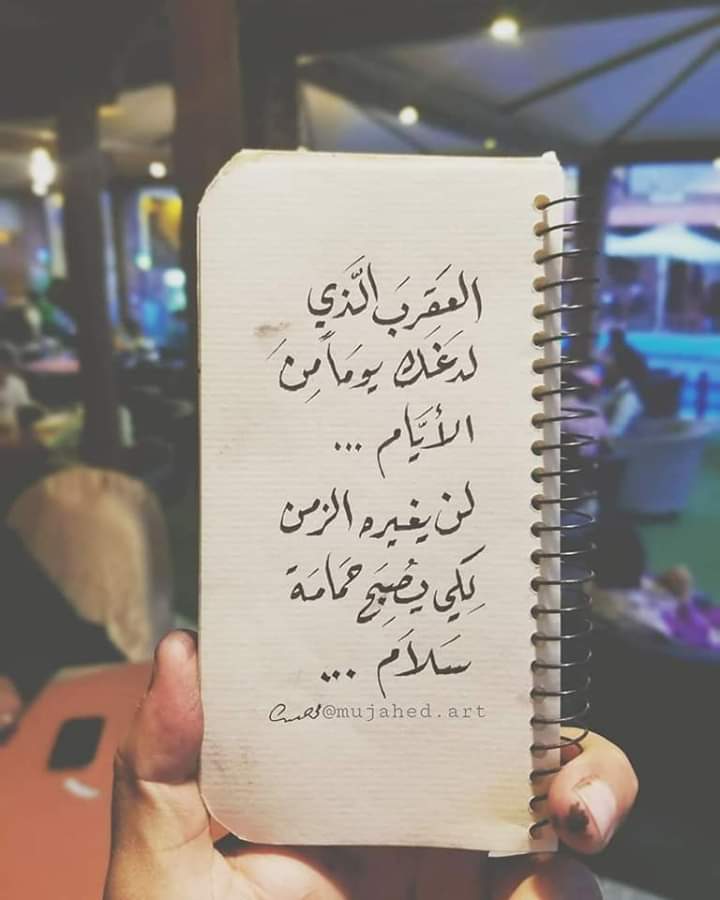 العَقرَب الَّذي
لدَغَك يومَاً مِنَ
الأيَّام ...
لن يغيره الزمن
لِكَي يصُبِح حَمَامَة
سَلاَم ...
@mujahed.art